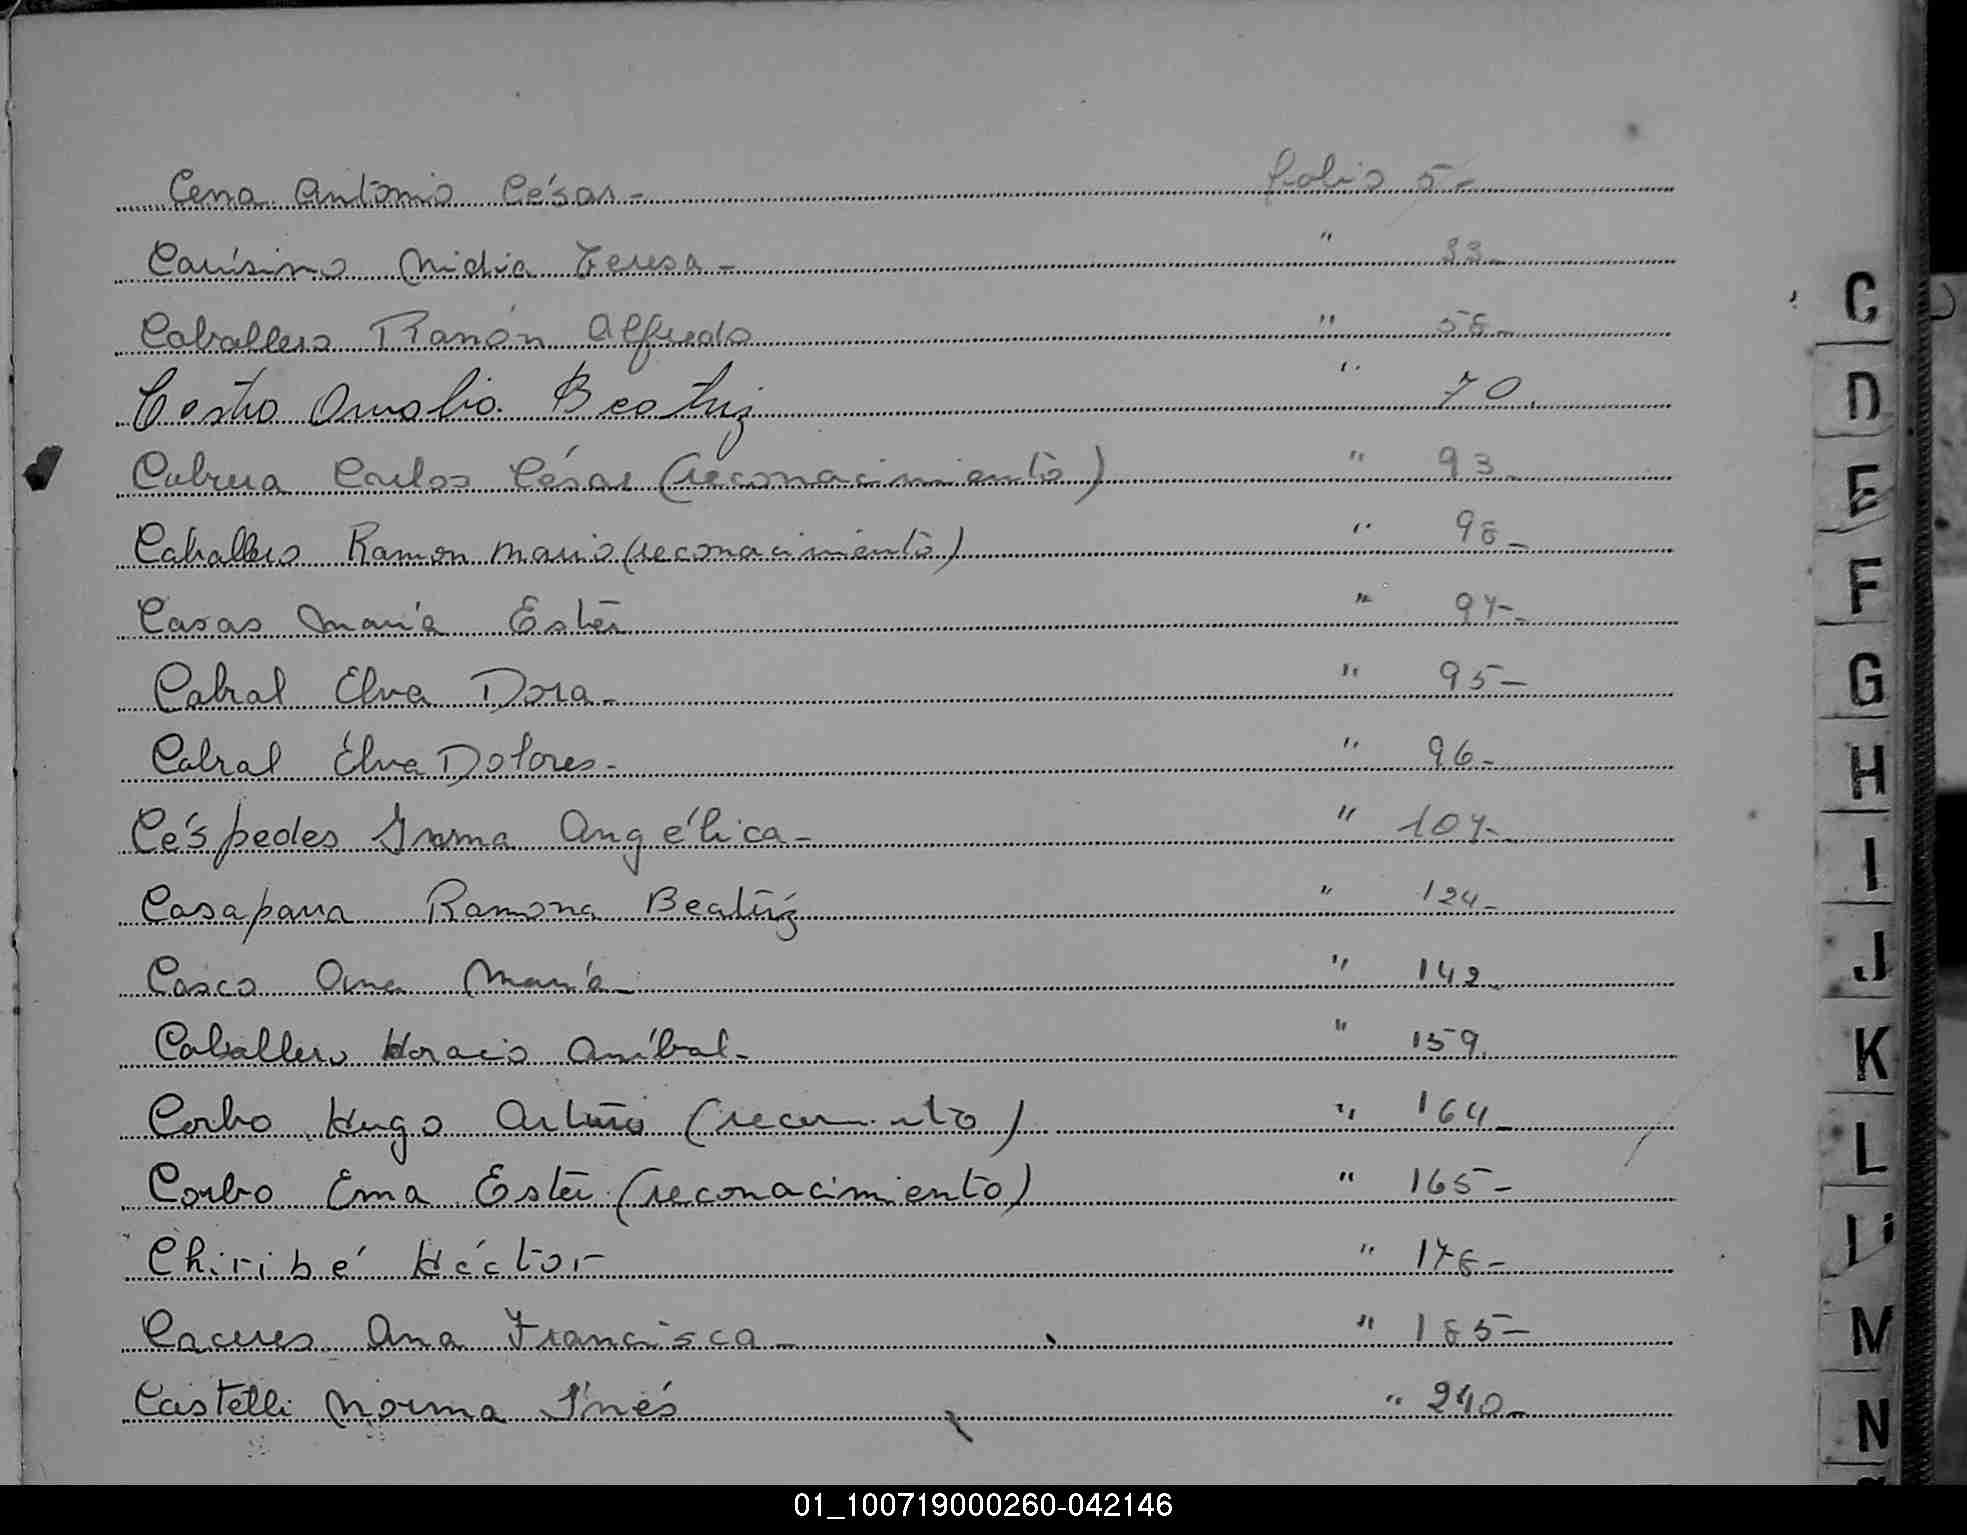 Cena Antonio César - folio 5 -
Carísimo Nidia Teresa - " 33 -
Caballero Ramón Alfredo " 58 -
Cestro Amalia Beatriz " 70.
Cabrera Carlos César (reconocimiento) " 93 -
Caballero Ramon Mario (reconocimiento) " 98 -
Casas María Ester " 94 -
Cabral Elva Dora - " 95 -
Cabral Élva Dolores - " 96 -
Céspedes Irma Angélica - " 107 -
Casapava Ramona Beatríz " 124 -
Casco Ana María - " 142
Caballero Horacio Aníbal - " 159.
Corbo Hugo Arturo " 164 -
Corbo Ema Ester (reconocimiento) " 165 -
Chiribé Héctor " 178 -
Caceres Ana Francisca - " 185 -
Castelli Norma Inés " 240 -
C
D
E
F
G
H
I
J
K
L
M
N
01_100719000260-042146